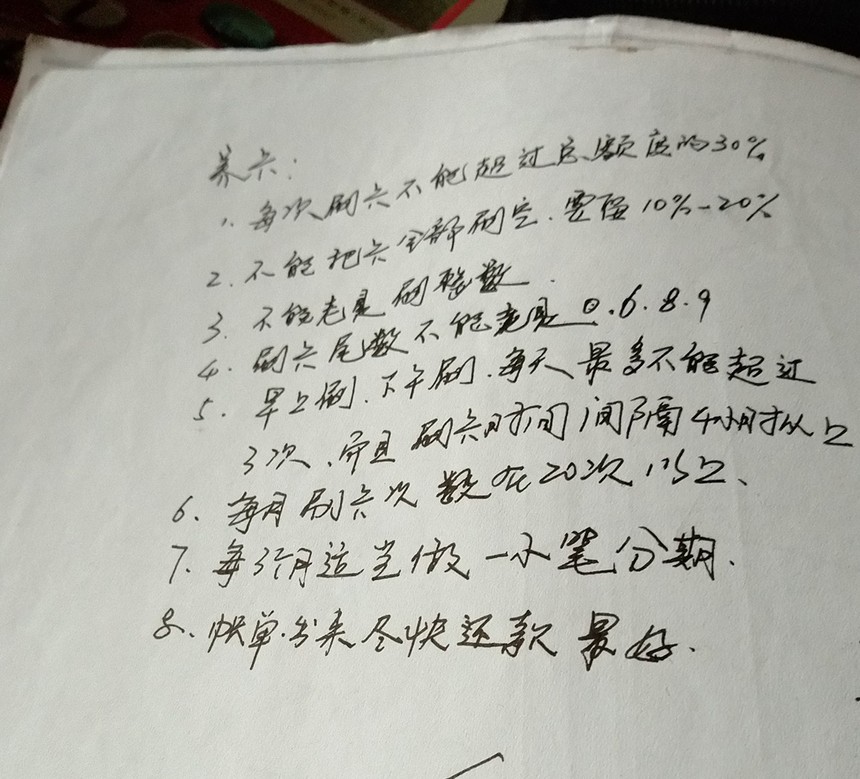 养卡:
1. 每次刷卡不能超过总额度的30%
2. 不能把卡全部刷空.要留10%-20%
3. 不能老是刷整数.
4. 刷卡尾数不能老是0.6.8.9
5. 早上刷.下午刷.每天最多不能超过
3次、并且刷卡时间间隔4小时以上
6. 每月刷卡次数在20次以上、
7. 每3个月适当做一小笔分期.
8、帐单出来尽快还款最好.